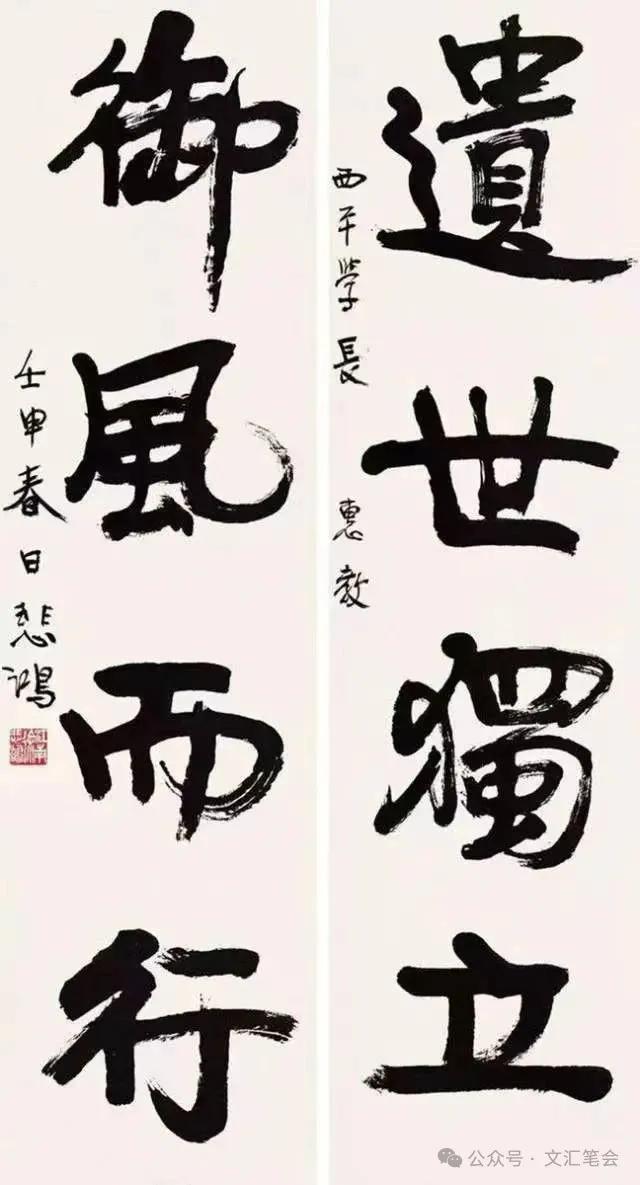 遺世獨立
西平學長 惠教
御風而行
壬申春日悲鴻
公众号 · 文汇笔会